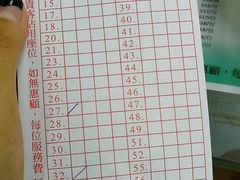 貴客佔用座位，如無惠顧，每位服務費
15.
16.
17.
18.
19.
20.
21.
22.
23.
24.
25.
26.
27.
28.
29.
30.
31.
32.
39.
40.
41.
42.
43.
44.
45.
46.
47.
48.
49.
50.
51.
52.
53.
54.
55.
56
惠顧